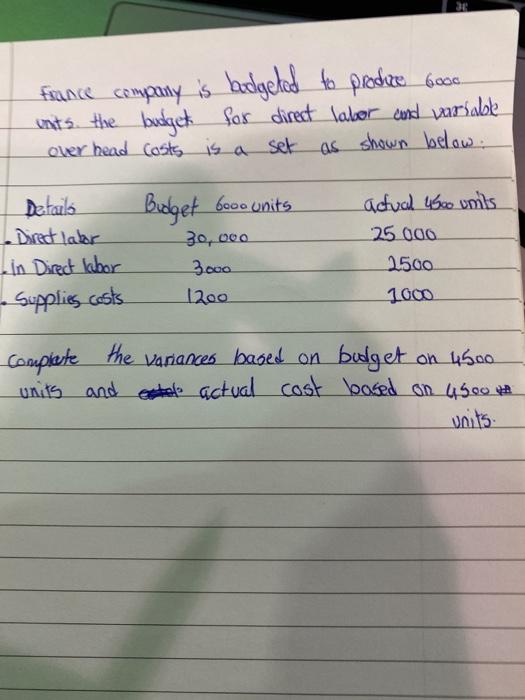 France company is budgeted to produce 6000
units. the budget for direct labor and variable
over head costs is a set as shown below:
Details Budget 6000 units actual 4500 units
. Direct labor 30,000 25 000
. In Direct labor 3000 2500
. Supplies costs 1200 1000
complete the variances based on budget on 4500
units and actual cost based on 4500
units.